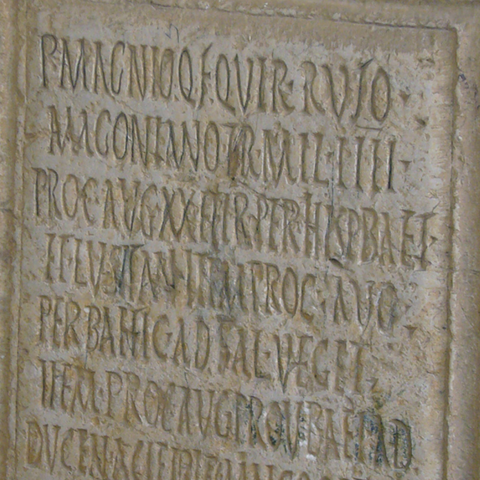 P·MAGNIO Q·F·QVIR·RVFO
MAGONIANO TR·MIL·IIII·
PROC·AVG·XX·HER·PER·HISP·BAET·
ET·LVSITAN·ITEM PROC·AVG
PER BAETIC·AD·FAL·VEGET·
ITEM·PROC·AVG·PROV·BAET·AD
DVCEN·ACILI